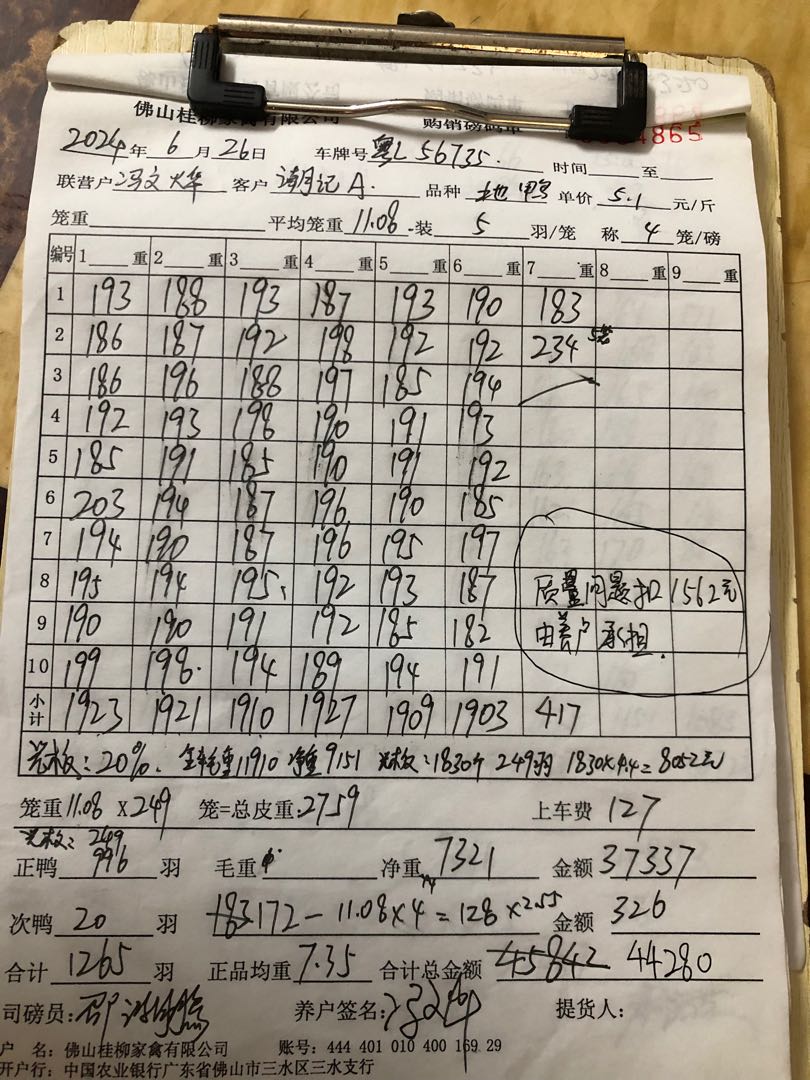 佛山桂柳家禽有限公司 购销磅码单
4865
2024年 6 月 26日 车牌号 粤L 56735. 时间 至
联营户 冯文烨 客户 潮记A. 品种 土地鸭 单价 5.1 元/斤
笼重 平均笼重 11.08 装 5 羽/笼 称 4 笼/磅
编号 1 重 2 重 3 重 4 重 5 重 6 重 7 重 8 重 9 重
1 193 188 193 187 193 190 183
2 186 187 192 198 192 192 234
3 186 196 188 197 185 194
4 192 193 198 190 191 193
5 185 191 185 190 191 192
6 203 194 187 196 190 185
7 194 190 187 196 195 197
8 195 194 195 192 193 187 质量问题扣1562元
9 190 190 191 192 185 182 由养户承担.
10 199 198. 194 189 194 191
小计 1923 1921 1910 1927 1909 1903 417
光板:20%. 全车毛重11910 净重9151 光板:1830斤 249羽 1830×4.4=8052元
笼重 11.08 X 249 笼=总皮重: 2759 上车费 127
光板: 249
正鸭 996 羽 毛重 净重 7321 金额 37337
次鸭 20 羽 183 172 - 11.08×4 = 128 ×2.55 金额 326
合计 1265 羽 正品均重 7.35 合计总金额 45842 44280
司磅员: 养户签名: 提货人:
户 名: 佛山桂柳家禽有限公司 账号: 444 401 010 400 169 29
开户行: 中国农业银行广东省佛山市三水区三水支行